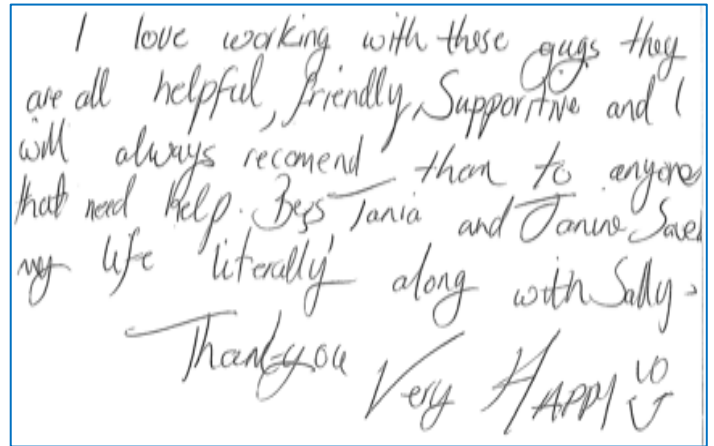 I love working with these guys they
are all helpful, friendly, Supportive and I
will always recomend them to anyone
that need help. Bezs Tania and Janine Saved
my life 'literally' along with Sally.
Thankyou Very HAPPY